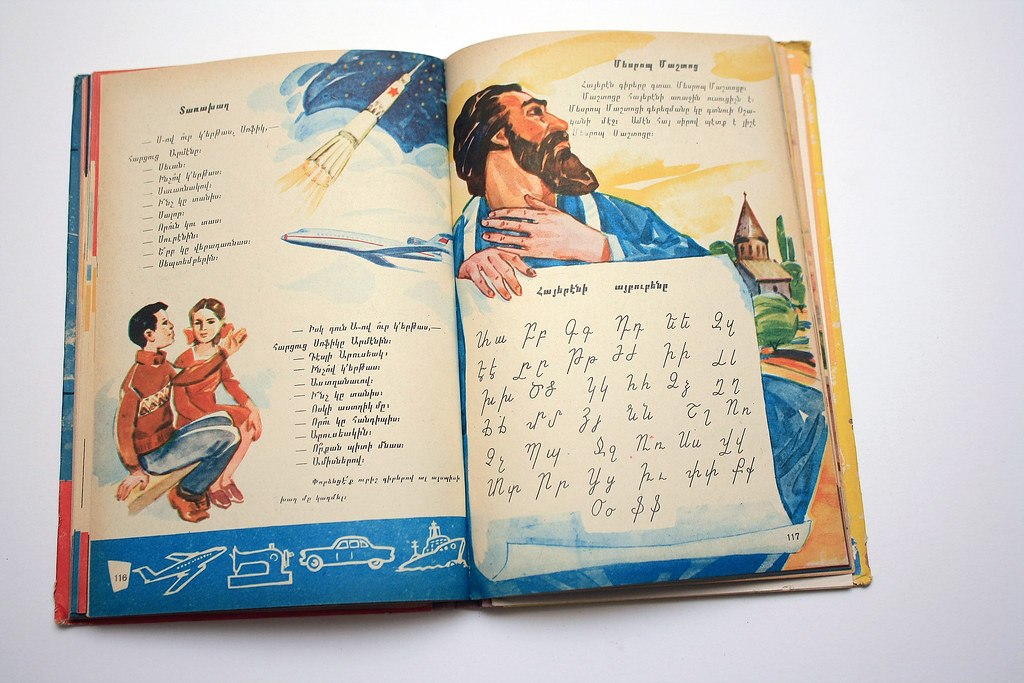 Տառախաղ
— Ս–ով ո՞ւր կ'երթաս, Սոֆիկ,—
հարցուց Արմէնը։
— Սեւան։
— Ինչո՞վ կ'երթաս։
— Սաւառնակով։
— Ի՞նչ կը տանիս։
— Սալոր։
— Որո՞ւն կու տաս։
— Սուրէնին։
— Ե՞րբ կը վերադառնաս։
— Սեպտեմբերին։
— Իսկ դուն Ա–ով ո՞ւր կ'երթաս,—
հարցուց Սոֆիկը Արմէնին։
— Դէպի Արուսեակ։
— Ինչո՞վ կ'երթաս։
— Աստղանաւով։
— Ի՞նչ կը տանիս։
— Ոսկի աստղիկ մը։
— Որո՞ւ կը հանդիպիս։
— Արուսեակին։
— Ո՞րքան պիտի մնաս։
— Ամիսներով։
Փորձեցէ՛ք ուրիշ գիրերով ալ այսպիսի
խաղ մը կազմել։
116
Մեսրոպ Մաշտոց
Հայերէն գիրերը գտաւ Մեսրոպ Մաշտոցը։
Մաշտոցը հայերէնի առաջին ուսուցիչն է։
Մեսրոպ Մաշտոցի գերեզմանը կը գտնուի Օշա-
կանի մէջ։ Ամէն հայ սիրով պէտք է յիշէ
Մեսրոպ Մաշտոցը։
Հայերէնի այբուբենը
Աա Բբ Գգ Դդ Եե Զզ
Էէ Ըը Թթ Ժժ Իի Լլ
Խխ Ծծ Կկ Հհ Ձձ Ղղ
Ճճ Մմ Յյ Նն Շշ Ոո
Չչ Պպ Ջջ Ռռ Սս Վվ
Տտ Րր Ցց Իւ Փփ Քք
Օօ Ֆֆ
117